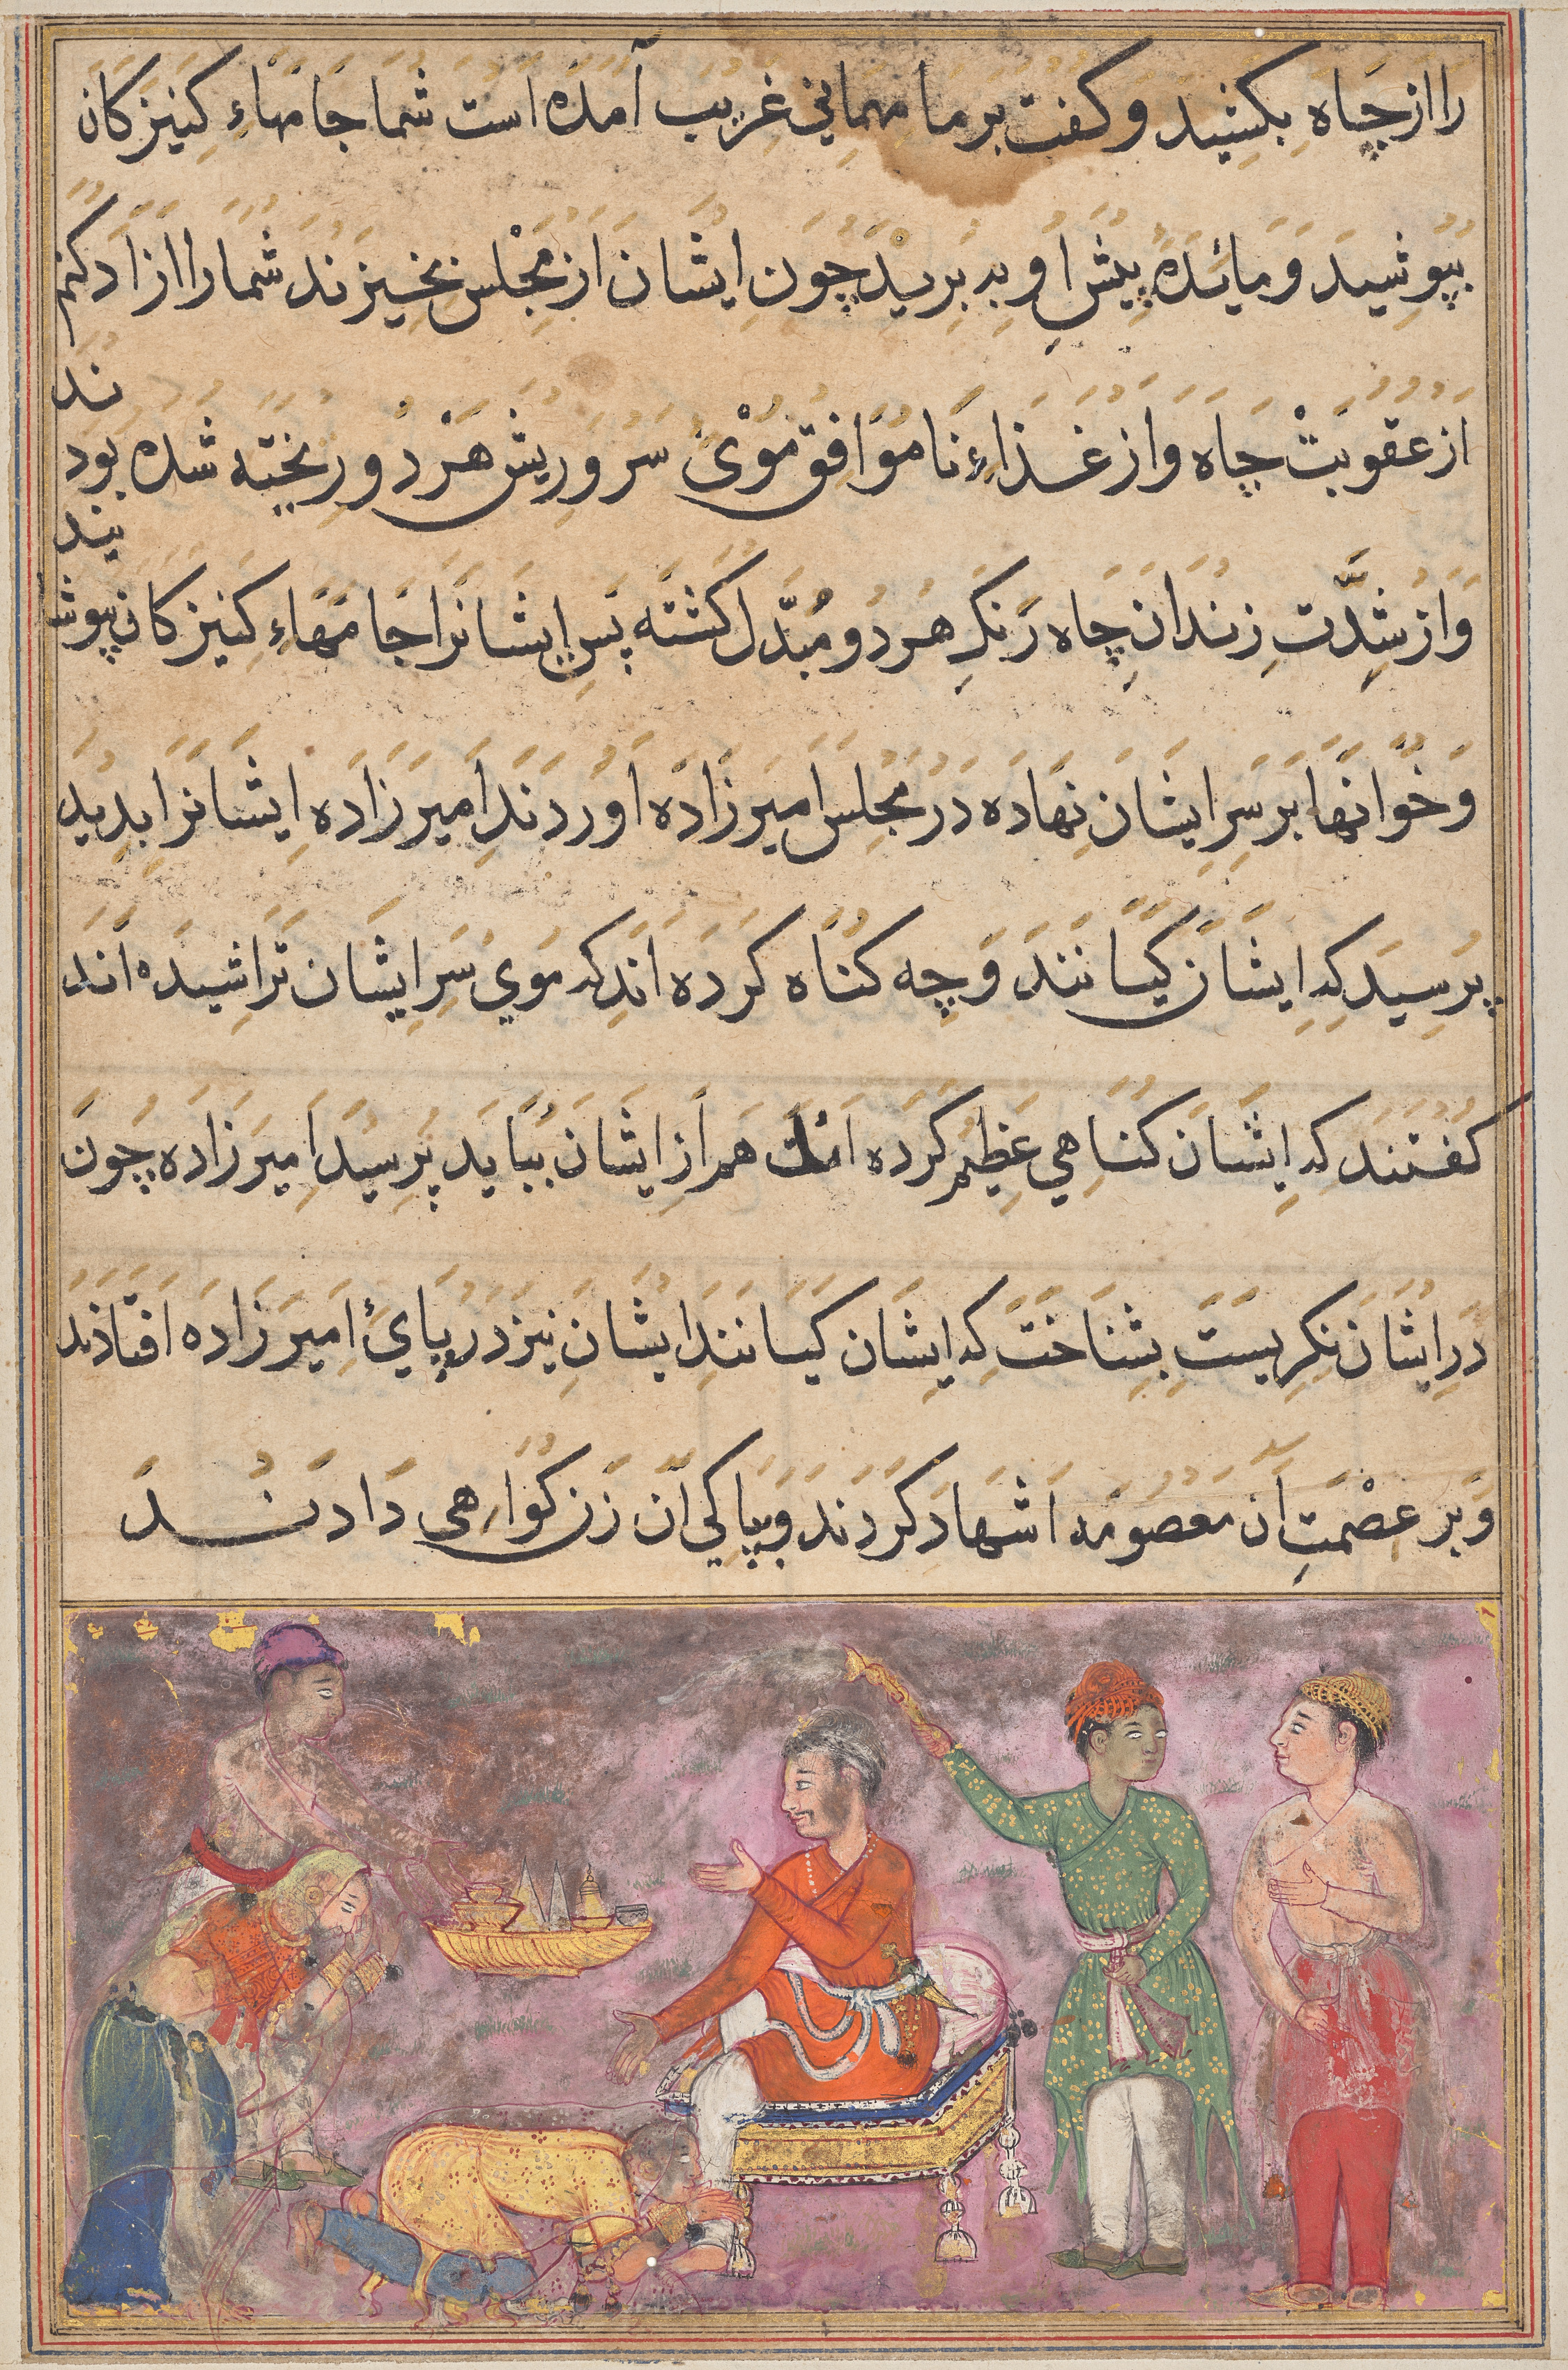 را از چاه بکشید و کفت بر ما مهمانی غریب آمده است شما جامهاءِ کنیزکان
بپوشید و مائده پیش او به برید چون ایشان از مجلس بخیزند شما را ازاد کنم
ند
از عقوبت چاه و از غذاءِ ناموافق موئ سر و ریش هر دو ریخته شده بود
یند
و از شدّت زندان چاه رنک هر دو مبدّل کشته پس ایشانرا جامهاءِ کنیزکان پوشا
و خوانها بر سر ایشان نهاده در مجلس امیرزاده اوردند امیرزاده ایشانرا بدید
پرسید که ایشان کیانند و چه کناه کرده اند که موی سر ایشان تراشیده اند
کفتند که ایشان کناهی عظیم کرده هم از ایشان بباید پرسید امیرزاده چون
در ایشان نکریست بشناخت که ایشان کیانند ایشان نیز در پائ امیرزاده افتادند
و بر عصمت ان معصومه اشهاد کردند و بپاکی آن زن کواهی دادند